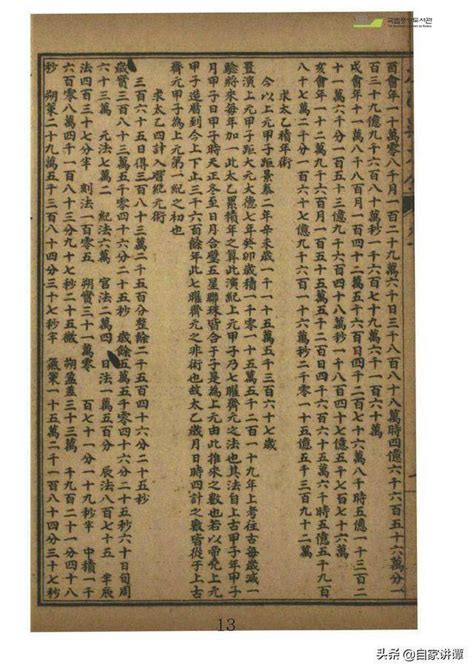 국립중앙도서관
酉會年一十萬零八千月一百二十九萬六千日三千八百八十八萬時四億六千六百五十六萬分一
百三十九億九千六百八十萬秒一千六百七十九億六千一百六十萬
戌會年一十一萬八千八百月一百四十二萬五千六百日四千二百七十六萬八千時五億一千三百二
十一萬六千分一百五十三億九千六百四十八萬秒一千八百四十七億五千七百七十六萬
亥會年一十二萬九千六百月一百五十五萬五千二百日四千六百六十五萬六千時五億五千九百
八十七萬二千分一百六十七億九千六百一十六萬秒二千零一十五億五千三百九十二萬
求太乙積年術
今以上元甲子距景泰二年辛未歲一千一十五萬五千三百六十七歲
置演上元甲子距大元大德七年癸卯歲積一千零一十五萬五千二百一十九年上考往古每歲減一
驗將來每年加一此太乙累積年之算此演紀上元甲子乃七曜齊元之法也其法自上古甲子年甲子
月甲子日甲子時天正冬至日月合璧五星聯珠皆合于子是為上元由此推來之數也若以帝堯上元
甲子造曆到今上下止三千六百餘年此七曜齊元之非術也故太乙歲月日時四計之數皆從于上古
齊元甲子為上元第一紀之初也
求太乙四計入曆紀元術
三百六十五日得三百八十三萬二千五百分整餘二千五百四十六分二十五秒
歲實三百八十三萬五千零四十六分二十五秒 歲餘五萬五千零四十六分二十五秒 六十日旬周
六十三萬 元法七萬二 紀法六萬 宮法二萬四 日法一萬五百分 辰法八百七十五 半辰
法四百三十七分半 刻法一百零五 朔實三十一萬零 百七十一分一十九秒半 中積一千
六百零八萬四千一百八十三分九十七秒二十五微 朔盈差三十三萬 一千九百二十一分四十八
秒 朔策二十九萬五千三百八十四分三十七秒半 氣策一十五萬二千一百八十四分三十七秒
13
头条 @自家讲谭